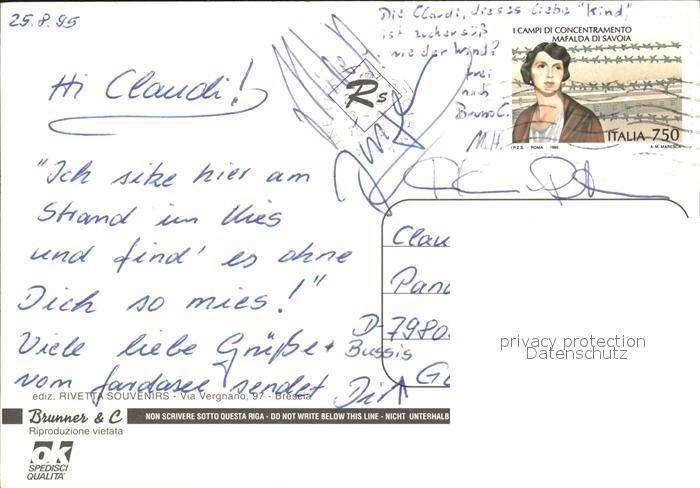 25.8.95
Die Claudi, dieses liebe "Kind,"
ist zuckersüß
wie der Wind?
frei
nach
Bruno C.
M.H.
I CAMPI DI CONCENTRAMENTO
MAFALDA DI SAVOIA
I.P.Z.S. - ROMA - 1995
ITALIA 750
A.M. MARESCA
Rs
Hi Claudi!
"Ich sitze hier am
Strand im Kies
und find' es ohne
Dich so mies!"
Viele liebe Grüße + Bussis
vom Gardasee sendet Dir
Clau
Pana
D-7980
privacy protection
Datenschutz
ediz. RIVETTA SOUVENIRS - Via Vergnano, 97 - Brescia
Brunner & C
NON SCRIVERE SOTTO QUESTA RIGA - DO NOT WRITE BELOW THIS LINE - NICHT UNTERHALB
Riproduzione vietata
ok
SPEDISCI
QUALITÀ